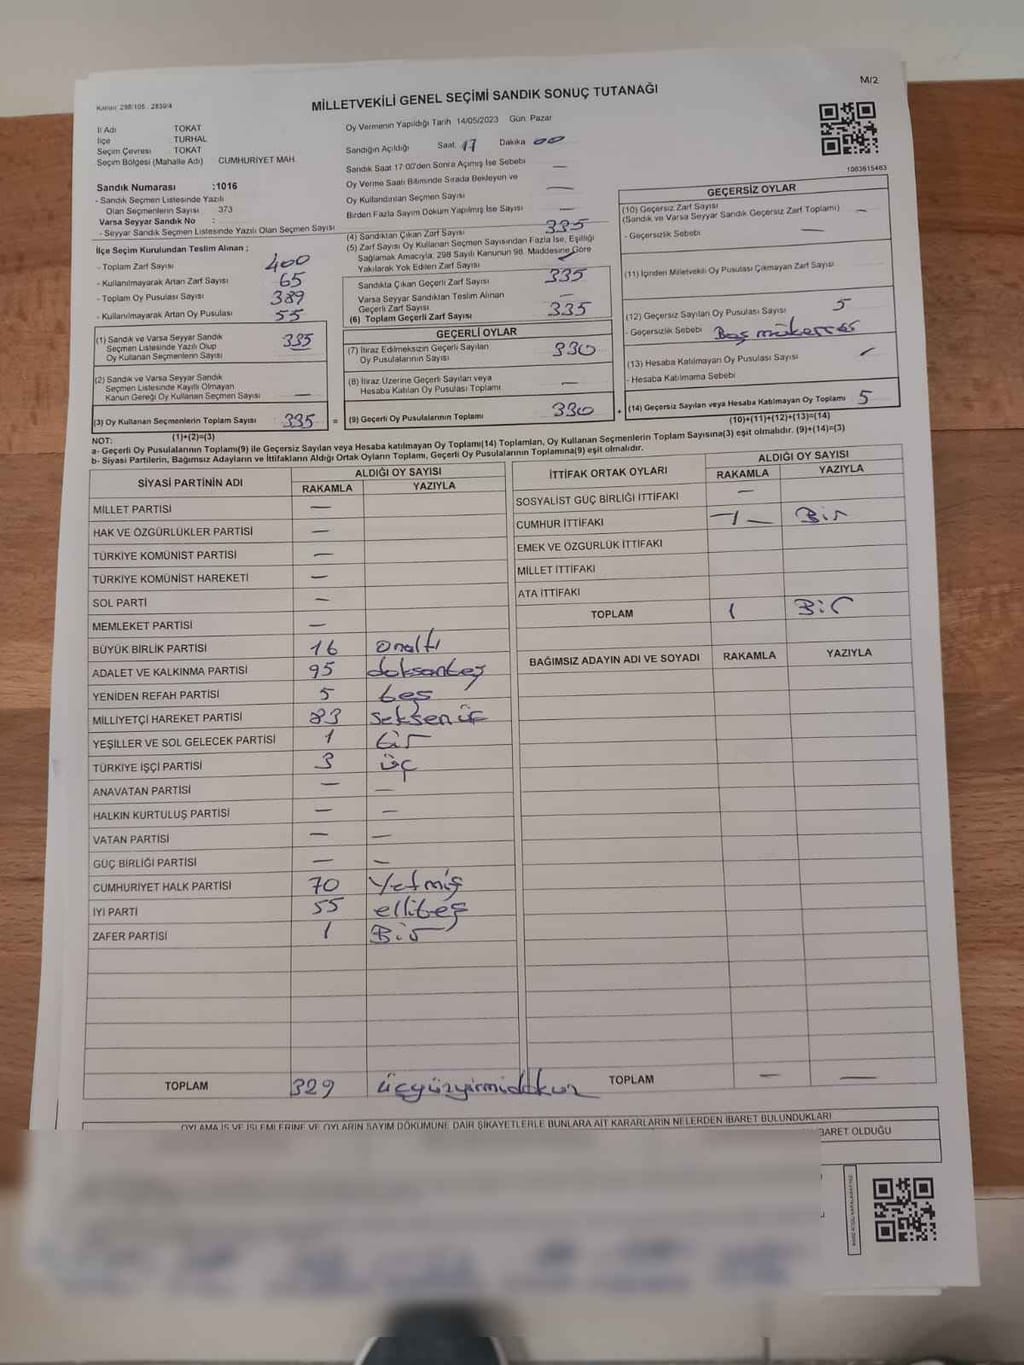 M/2
Kanun: 298/105 - 2839/4
MİLLETVEKİLİ GENEL SEÇİMİ SANDIK SONUÇ TUTANAĞI
İl Adı TOKAT
İlçe TURHAL
Seçim Çevresi TOKAT
Seçim Bölgesi (Mahalle Adı) CUMHURİYET MAH.
Sandık Numarası :1016
- Sandık Seçmen Listesinde Yazılı
Olan Seçmenlerin Sayısı 373
Varsa Seyyar Sandık No :
- Seyyar Sandık Seçmen Listesinde Yazılı Olan Seçmen Sayısı
Oy Vermenin Yapıldığı Tarih 14/05/2023 Gün: Pazar
Sandığın Açıldığı Saat: 17 Dakika 00
Sandık Saat 17:00'den Sonra Açılmış İse Sebebi —
Oy Verme Saati Bitiminde Sırada Bekleyen ve
Oy Kullandırılan Seçmen Sayısı —
Birden Fazla Sayım Döküm Yapılmış İse Sayısı —
1003615463
İlçe Seçim Kurulundan Teslim Alınan ;
- Toplam Zarf Sayısı 400
- Kullanılmayarak Artan Zarf Sayısı 65
- Toplam Oy Pusulası Sayısı 389
- Kullanılmayarak Artan Oy Pusulası 55
(1) Sandık ve Varsa Seyyar Sandık
Seçmen Listesinde Yazılı Olup
Oy Kullanan Seçmenlerin Sayısı 335
(2) Sandık ve Varsa Seyyar Sandık
Seçmen Listesinde Kayıtlı Olmayan
Kanun Gereği Oy Kullanan Seçmen Sayısı —
(3) Oy Kullanan Seçmenlerin Toplam Sayısı 335 =
(1)+(2)=(3)
(4) Sandıktan Çıkan Zarf Sayısı 335
(5) Zarf Sayısı Oy Kullanan Seçmen Sayısından Fazla İse, Eşitliği
Sağlamak Amacıyla; 298 Sayılı Kanunun 98. Maddesine Göre
Yakılarak Yok Edilen Zarf Sayısı —
Sandıkta Çıkan Geçerli Zarf Sayısı 335
Varsa Seyyar Sandıktan Teslim Alınan
Geçerli Zarf Sayısı —
(6) Toplam Geçerli Zarf Sayısı 335
GEÇERLİ OYLAR
(7) İtiraz Edilmeksizin Geçerli Sayılan
Oy Pusulalarının Sayısı 330
(8) İtiraz Üzerine Geçerli Sayılan veya
Hesaba Katılan Oy Pusulası Toplamı —
(9) Geçerli Oy Pusulalarının Toplamı 330 +
GEÇERSİZ OYLAR
(10) Geçersiz Zarf Sayısı
(Sandık ve Varsa Seyyar Sandık Geçersiz Zarf Toplamı) —
- Geçersizlik Sebebi —
(11) İçinden Milletvekili Oy Pusulası Çıkmayan Zarf Sayısı
(12) Geçersiz Sayılan Oy Pusulası Sayısı 5
- Geçersizlik Sebebi Boş mükerrer
(13) Hesaba Katılmayan Oy Pusulası Sayısı —
- Hesaba Katılmama Sebebi
(14) Geçersiz Sayılan veya Hesaba Katılmayan Oy Toplamı 5
(10)+(11)+(12)+(13)=(14)
NOT:
a- Geçerli Oy Pusulalarının Toplamı(9) ile Geçersiz Sayılan veya Hesaba katılmayan Oy Toplamı(14) Toplamları, Oy Kullanan Seçmenlerin Toplam Sayısına(3) eşit olmalıdır. (9)+(14)=(3)
b- Siyasi Partilerin, Bağımsız Adayların ve İttifakların Aldığı Ortak Oyların Toplamı, Geçerli Oy Pusulalarının Toplamına(9) eşit olmalıdır.
SİYASİ PARTİNİN ADI ALDIĞI OY SAYISI
RAKAMLA YAZIYLA
MİLLET PARTİSİ —
HAK VE ÖZGÜRLÜKLER PARTİSİ —
TÜRKİYE KOMÜNİST PARTİSİ —
TÜRKİYE KOMÜNİST HAREKETİ —
SOL PARTİ —
MEMLEKET PARTİSİ —
BÜYÜK BİRLİK PARTİSİ 16 onaltı
ADALET VE KALKINMA PARTİSİ 95 doksanbeş
YENİDEN REFAH PARTİSİ 5 beş
MİLLİYETÇİ HAREKET PARTİSİ 83 seksenüç
YEŞİLLER VE SOL GELECEK PARTİSİ 1 bir
TÜRKİYE İŞÇİ PARTİSİ 3 üç
ANAVATAN PARTİSİ — —
HALKIN KURTULUŞ PARTİSİ — —
VATAN PARTİSİ — —
GÜÇ BİRLİĞİ PARTİSİ — —
CUMHURİYET HALK PARTİSİ 70 Yetmiş
İYİ PARTİ 55 ellibeş
ZAFER PARTİSİ 1 Bir
TOPLAM 329 üçyüzyirmidokuz
İTTİFAK ORTAK OYLARI ALDIĞI OY SAYISI
RAKAMLA YAZIYLA
SOSYALİST GÜÇ BİRLİĞİ İTTİFAKI —
CUMHUR İTTİFAKI —1— Bir
EMEK VE ÖZGÜRLÜK İTTİFAKI
MİLLET İTTİFAKI
ATA İTTİFAKI
TOPLAM 1 Bir
BAĞIMSIZ ADAYIN ADI VE SOYADI RAKAMLA YAZIYLA
TOPLAM — —
OYLAMA İŞ VE İŞLEMLERİNE VE OYLARIN SAYIM DÖKÜMÜNE DAİR ŞİKAYETLERLE BUNLARA AİT KARARLARIN NELERDEN İBARET BULUNDUKLARI
İBARET OLDUĞU